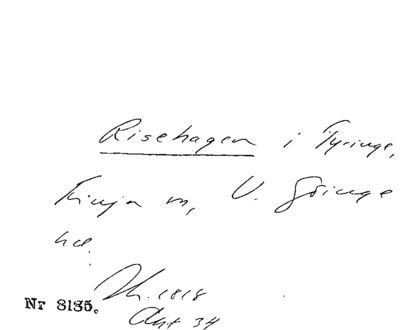 Risehagen i Tyringe,
Finja sn, V. Göinge
hd.
Nr 8135.
1818
Akt 34